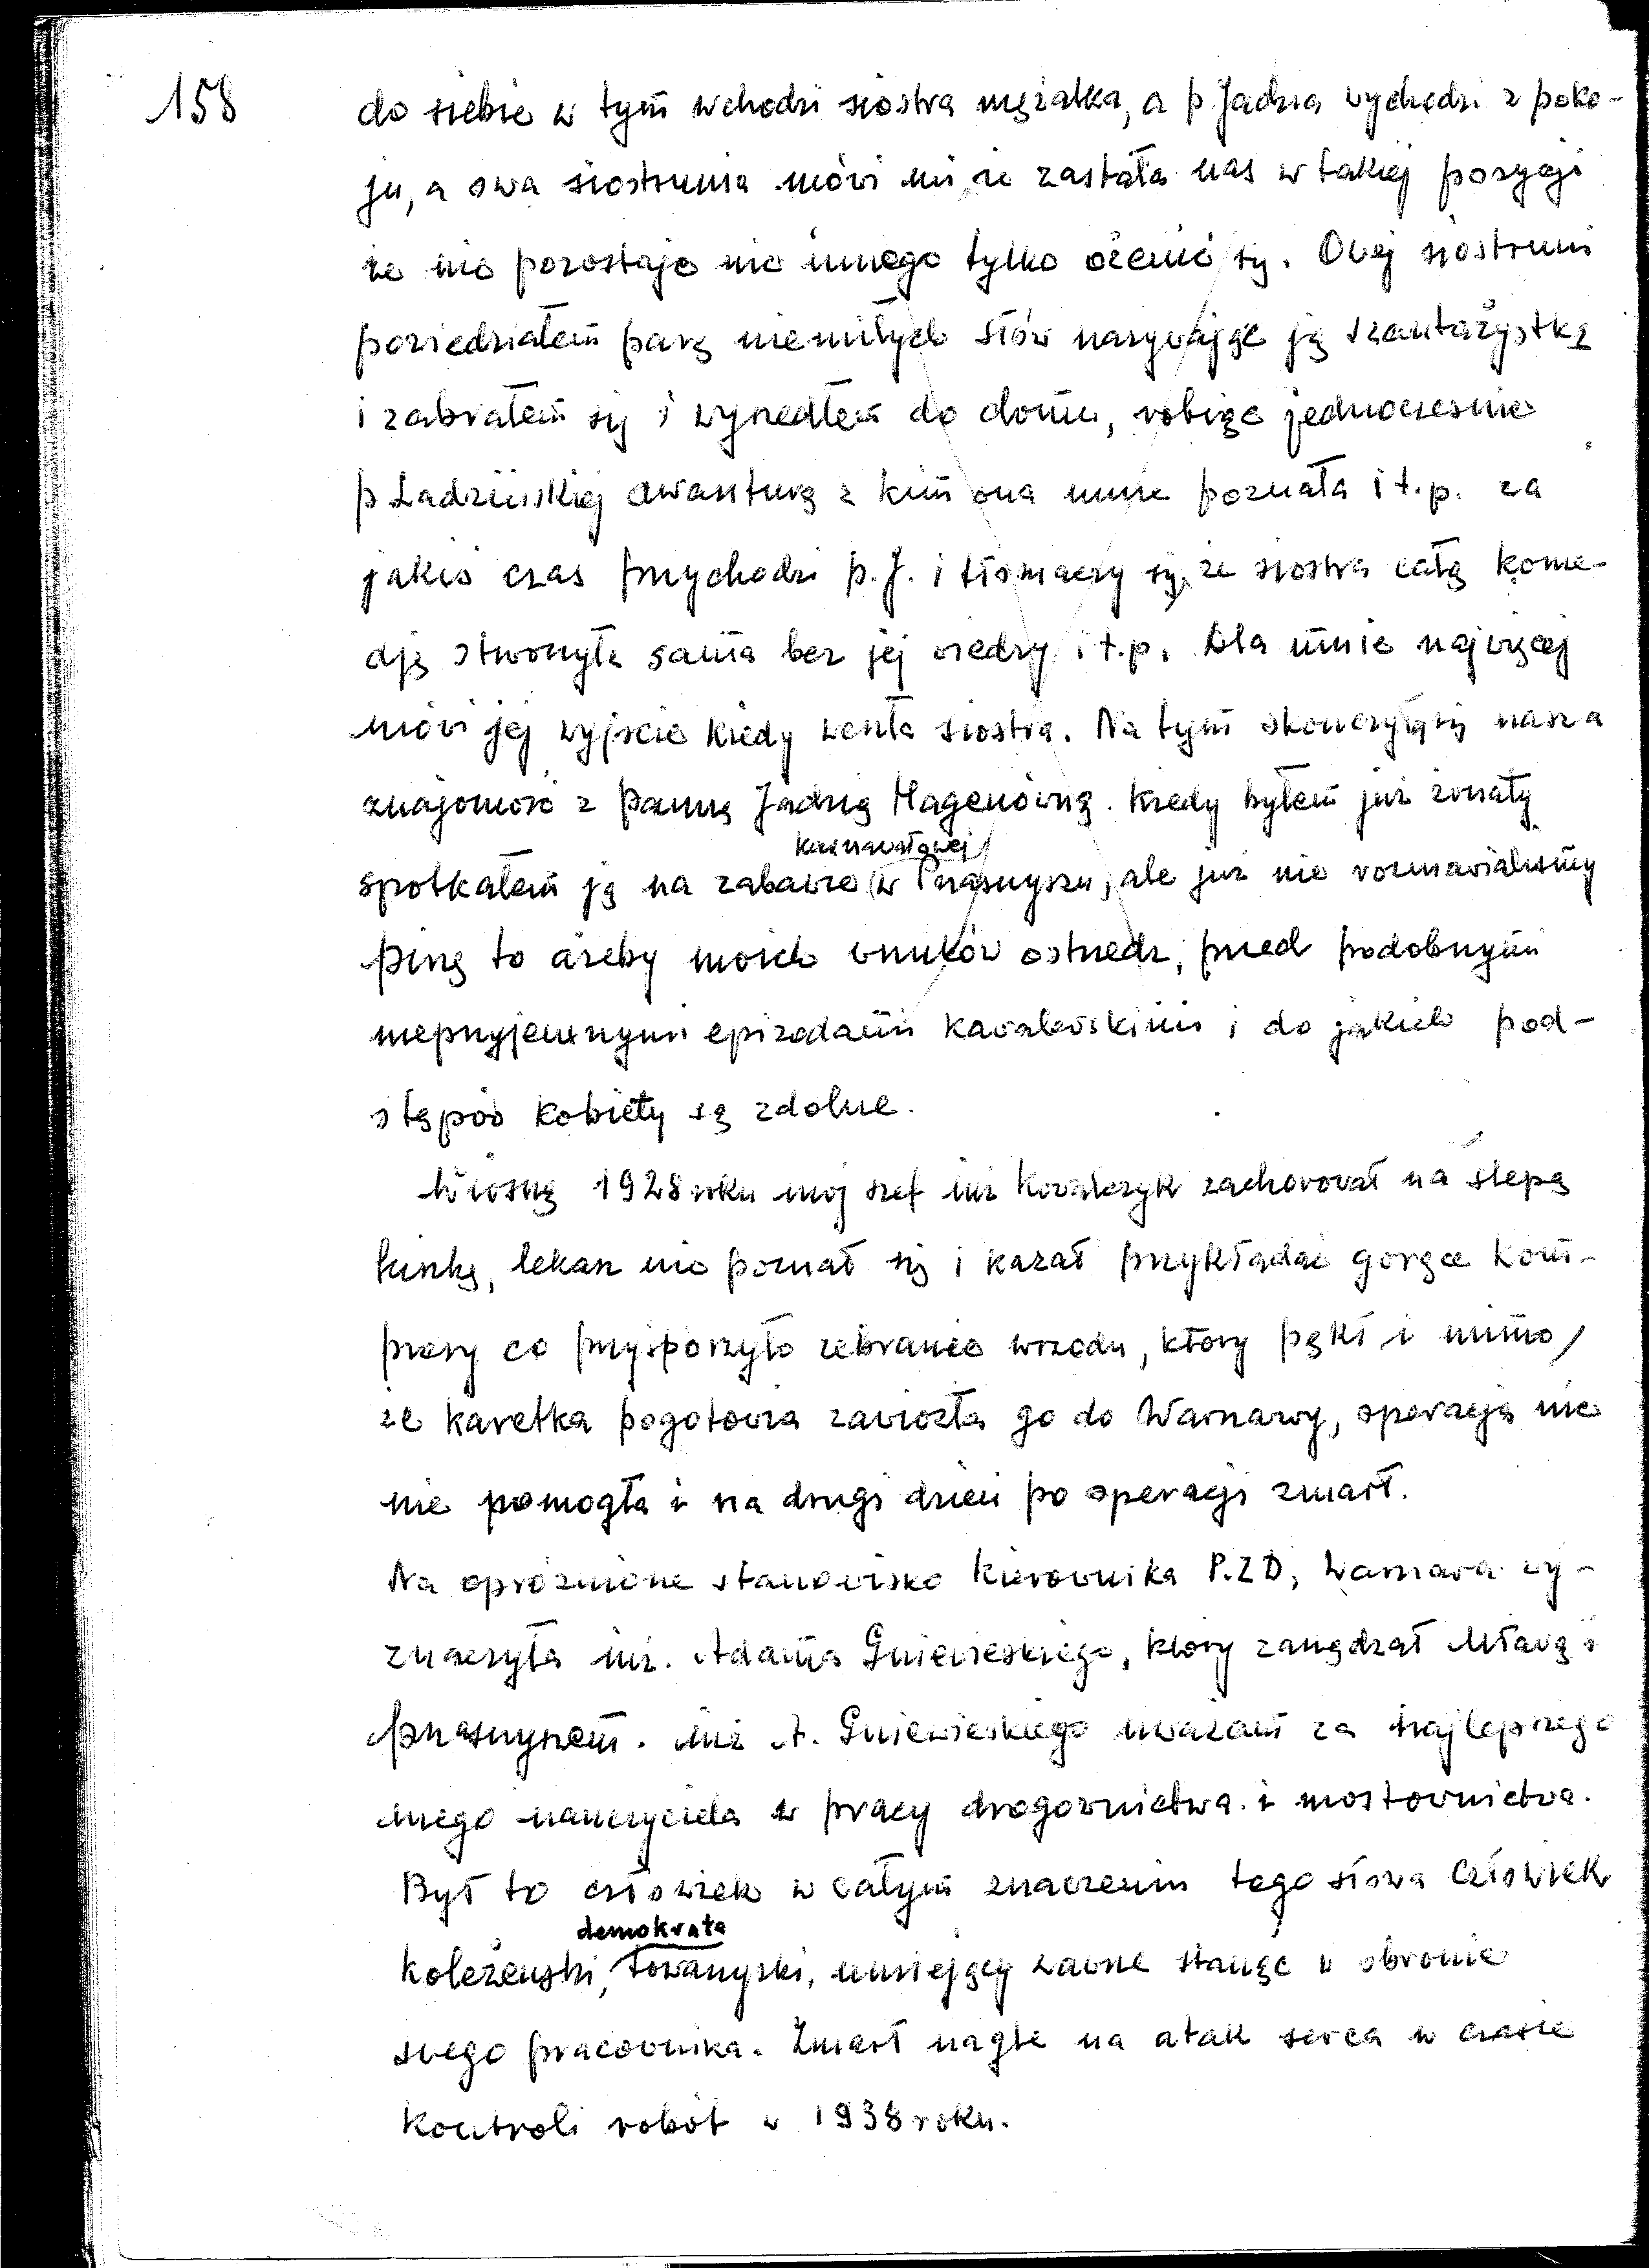 158
do siebie w tym wchodzi siostra mężatka, a p. Jadzia wychodzi z poko-
ju, a owa siostrunia mówi mi, że zastała nas w takiej pozycji
że nie pozostaje nic innego tylko ożenić się. Owej siostruni
powiedziałem parę niemiłych słów nazywając ją szantażystką
i zabrałem się i wyszedłem do domu, robiąc jednocześnie
p Ładzińskiej awanturę z kim ona mnie poznała i t.p. za
jakiś czas przychodzi p. J. i tłomaczy się, że siostra całą kome-
dję stworzyła sama bez jej wiedzy i t.p. Dla mnie najwięcej
mówi jej wyjście kiedy weszła siostra. Na tym skończyła się nasza
znajomość z panną Jadzią Hagenówną. Kiedy byłem już żonaty
karnawałowej
spotkałem ją na zabawie w Przasnyszu, ale już nie rozmawialiśmy
piszę to ażeby moich wnuków ostrzedz, przed podobnymi
nieprzyjemnymi epizodami kawalerskimi i do jakich pod-
stępów kobiety są zdolne.
Wiosną 1928 roku mój szef inż Kowalczyk zachorował na ślepą
kiszkę, lekarz nie poznał się i kazał przykładać gorące kom-
presy co przysporzyło zebranie wrzodu, który pękł i mimo,
że karetka pogotowia zawiozła go do Warszawy, operacja nic
nie pomogła i na drugi dzień po operacji zmarł.
Na opróżnione stanowisko kierownika P.Z.D, Warszawa wy-
znaczyła inż. Adama Gniewieskiego, który zarządzał Mławą i
Przasnyszem. inż A. Gniewieskiego uważam za najlepszego
mego nauczyciela w pracy drogownictwa i mostownictwa.
Był to człowiek w całym znaczeniu tego słowa człowiek
demokrata
koleżeński, towarzyski, umiejący zawsze stanąć w obronie
swego pracownika. Zmarł nagle na atak serca w czasie
kontroli robót w 1938 roku.